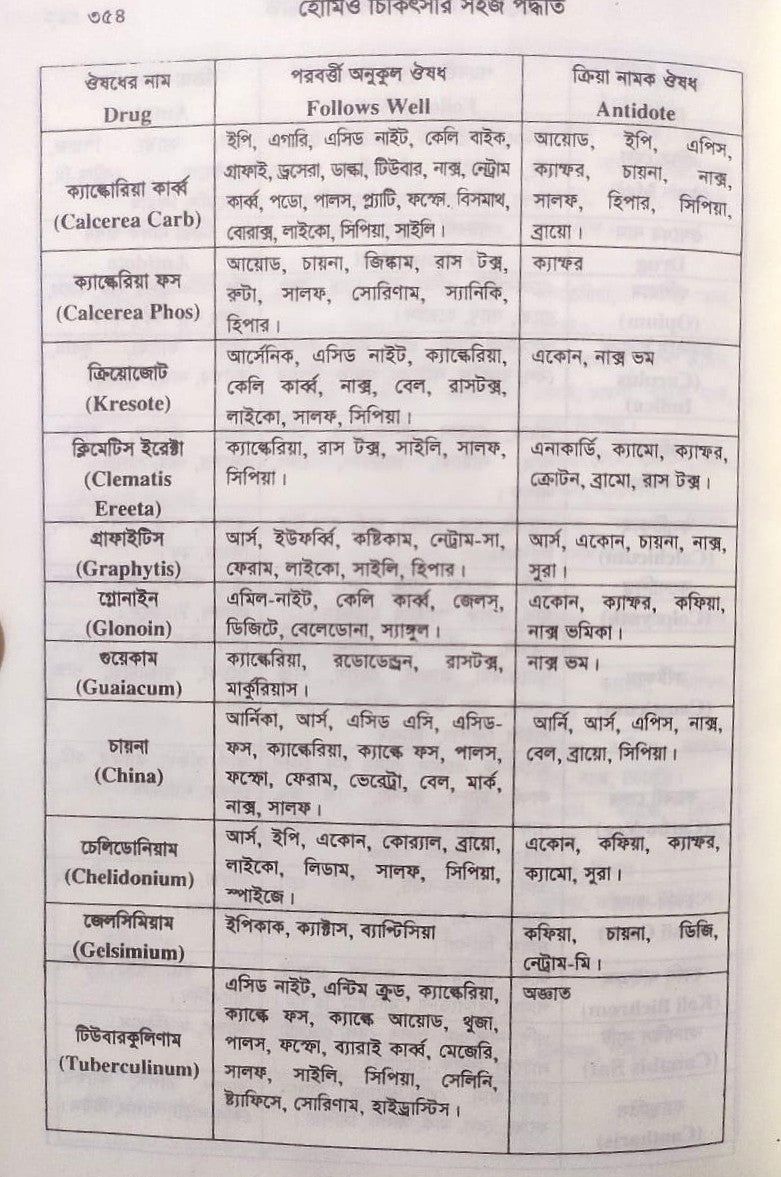 ৩৫৪
হোমিও চিকিৎসার সহজ পদ্ধতি
ঔষধের নাম
Drug
পরবর্ত্তী অনুকূল ঔষধ
Follows Well
ক্রিয়া নামক ঔষধ
Antidote
ক্যাল্কেরিয়া কার্ব্ব
(Calcerea Carb)
ইপি, এগারি, এসিড নাইট, কেলি বাইক,
গ্রাফাই, ড্রসেরা, ডাল্কা, টিউবার, নাক্স, নেট্রাম
কার্ব্ব, পডো, পালস, প্ল্যাটি, ফস্ফো, বিসমাথ,
বোরাক্স, লাইকো, সিপিয়া, সাইলি।
আয়োড, ইপি, এপিস,
ক্যাম্ফর, চায়না, নাক্স,
সালফ, হিপার, সিপিয়া,
ব্রায়ো।
ক্যাল্কেরিয়া ফস
(Calcerea Phos)
আয়োড, চায়না, জিঙ্কাম, রাস টক্স,
রুটা, সালফ, সোরিণাম, স্যানিকি,
হিপার।
ক্যাম্ফর
ক্রিয়োজোট
(Kresote)
আর্সেনিক, এসিড নাইট, ক্যাল্কেরিয়া,
কেলি কার্ব্ব, নাক্স, বেল, রাসটক্স,
লাইকো, সালফ, সিপিয়া।
একোন, নাক্স ভম
ক্লিমেটিস ইরেক্টা
(Clematis
Ereeta)
ক্যাল্কেরিয়া, রাস টক্স, সাইলি, সালফ,
সিপিয়া।
এনাকার্ডি, ক্যামো, ক্যাম্ফর,
ক্রোটন, ব্রামো, রাস টক্স।
গ্রাফাইটিস
(Graphytis)
আর্স, ইউফর্ব্বি, কষ্টিকাম, নেট্রাম-সা,
ফেরাম, লাইকো, সাইলি, হিপার।
আর্স, একোন, চায়না, নাক্স,
সূরা।
গ্লোনাইন
(Glonoin)
এমিল-নাইট, কেলি কার্ব্ব, জেলস্,
ডিজিটে, বেলেডোনা, স্যাঙ্গুল।
একোন, ক্যাম্ফর, কফিয়া,
নাক্স ভমিকা।
গুয়েকাম
(Guaiacum)
ক্যাল্কেরিয়া, রডোডেন্ড্রন, রাসটক্স,
মার্কুরিয়াস।
নাক্স ভম।
চায়না
(China)
আর্নিকা, আর্স, এসিড এসি, এসিড-
ফস, ক্যাল্কেরিয়া, ক্যাল্কে ফস, পালস,
ফস্ফো, ফেরাম, ভেরেট্রা, বেল, মার্ক,
নাক্স, সালফ।
আর্নি, আর্স, এপিস, নাক্স,
বেল, ব্রায়ো, সিপিয়া।
চেলিডোনিয়াম
(Chelidonium)
আর্স, ইপি, একোন, কোর‍্যাল, ব্রায়ো,
লাইকো, লিডাম, সালফ, সিপিয়া,
স্পাইজে।
একোন, কফিয়া, ক্যাম্ফর,
ক্যামো, সূরা।
জেলসিমিয়াম
(Gelsimium)
ইপিকাক, ক্যাক্টাস, ব্যাপ্টিসিয়া
কফিয়া, চায়না, ডিজি,
নেট্রাম-মি।
টিউবারকুলিণাম
(Tuberculinum)
এসিড নাইট, এন্টিম ক্রুড, ক্যাল্কেরিয়া,
ক্যাল্কে ফস, ক্যাল্কে আয়োড, থূজা,
পালস, ফস্ফো, ব্যারাই কার্ব্ব, মেজেরি,
সালফ, সাইলি, সিপিয়া, সেলিনি,
ষ্ট্যাফিসে, সোরিণাম, হাইড্রাস্টিস।
অজ্ঞাত